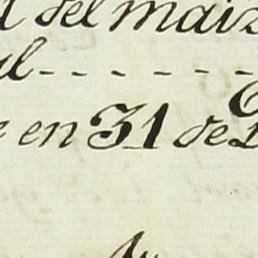 del maiz
al - - - - - -
en 31 de